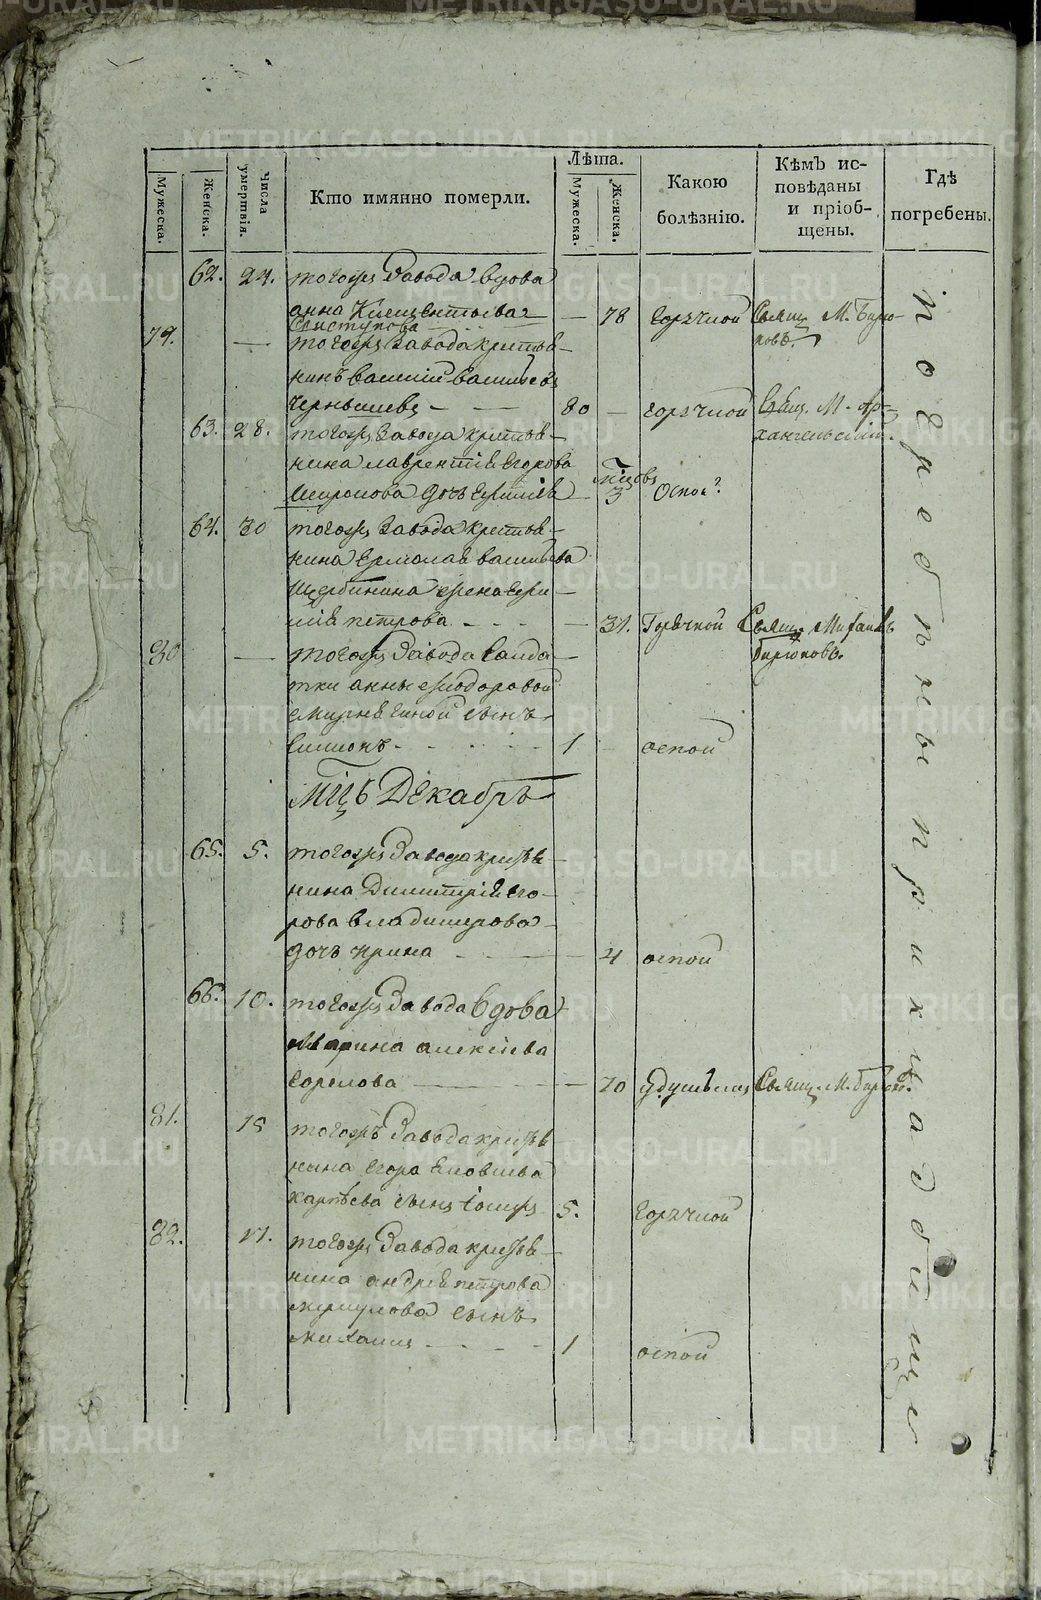 METRIKI.GASO-URAL.RU
Мужеска.
Женска.
Числа умертвія.
Кто имянно померли.
Лѣта.
Мужеска.
Женска.
Какою болѣзнію.
Кѣмъ исповѣданы и пріобщены.
Гдѣ погребены.
62. 24. тогожъ завода вдова
анна — 78 горячкой Свящ. М. Бирю-
ковъ.
79. — тогожъ завода крестья-
нинъ василий васильевъ
Чернышевъ — — 80 — горячкой Свящ. М. Ар-
хангельский.
63. 28. тогожъ завода крестья-
нина лаврентія егорова
мцовъ
дочь — 3 Оспой
64. 30 тогожъ завода крестья-
нина Ермолая васильева
Щербинина жена
петрова — — 31. Горячкой Свящ. Михаилъ
Бирюковъ.
80 — тогожъ завода салда-
тки анны феодоровой
сынъ
Симионъ — 1 — оспой
Мцъ Декабрь
65. 5. тогожъ завода крестья-
нина Димитрія его-
рова владимерова
дочь ирина — — 4 оспой
66. 10. тогожъ завода вдова
Марина алексіева
— — 70 удушьемъ Свящ. М. Бирюковъ.
81. 15 тогожъ завода крестья-
нина егора
сынъ 5. горячкой
82. 17. тогожъ завода крестья-
нина андрея петрова
сынъ
михаилъ — 1 оспой
погребены при кладбище